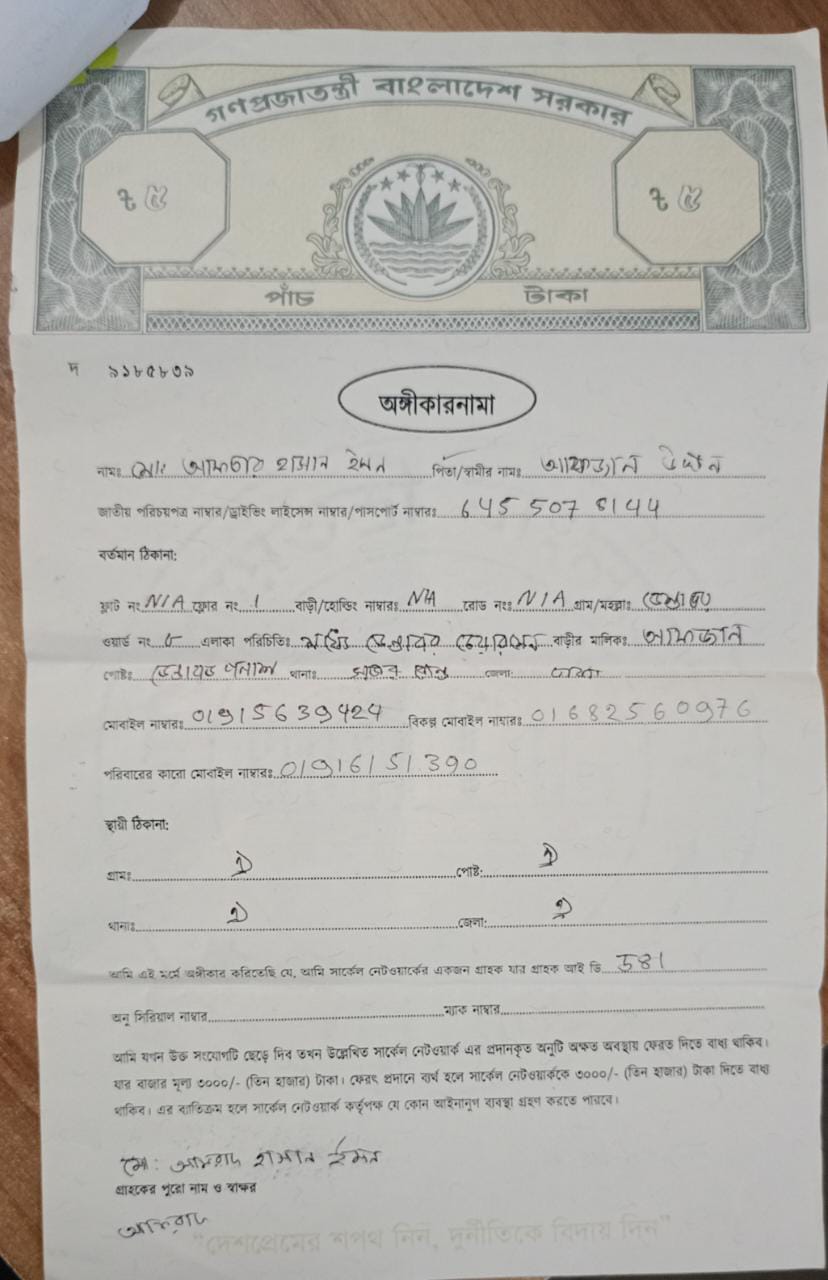 গণপ্রজাতন্ত্রী বাংলাদেশ সরকার
৳ ৫ ৳ ৫
পাঁচ টাকা
দ ৯১৮৫৮৩৯
অঙ্গীকারনামা
নামঃ মোঃ হাসান ইমন পিতা/স্বামীর নামঃ
জাতীয় পরিচয়পত্র নাম্বার/ড্রাইভিং লাইসেন্স নাম্বার/পাসপোর্ট নাম্বারঃ 645 507 8144
বর্তমান ঠিকানা:
ফ্লাট নং N/A ফ্লোর নং 1 বাড়ী/হোল্ডিং নাম্বারঃ N/A রোড নংঃ N/A গ্রাম/মহল্লাঃ
ওয়ার্ড নং এলাকা পরিচিতিঃ বাড়ীর মালিকঃ
পোষ্টঃ থানাঃ জেলাঃ ঢাকা
মোবাইল নাম্বারঃ 01915639424 বিকল্প মোবাইল নাম্বারঃ 01682560976
পরিবারের কারো মোবাইল নাম্বারঃ 01916151390
স্থায়ী ঠিকানা:
গ্রামঃ ঐ পোষ্ট: ঐ
থানাঃ ঐ জেলা: ঐ
আমি এই মর্মে অঙ্গীকার করিতেছি যে, আমি সার্কেল নেটওয়ার্কের একজন গ্রাহক যার গ্রাহক আই ডি 581
অনু সিরিয়াল নাম্বার ম্যাক নাম্বার
আমি যখন উক্ত সংযোগটি ছেড়ে দিব তখন উল্লেখিত সার্কেল নেটওয়ার্ক এর প্রদানকৃত অনুটি অক্ষত অবস্থায় ফেরত দিতে বাধ্য থাকিব।
যার বাজার মূল্য ৩০০০/- (তিন হাজার) টাকা। ফেরৎ প্রদানে ব্যর্থ হলে সার্কেল নেটওয়ার্ককে ৩০০০/- (তিন হাজার) টাকা দিতে বাধ্য
থাকিব। এর ব্যতিক্রম হলে সার্কেল নেটওয়ার্ক কর্তৃপক্ষ যে কোন আইনানুগ ব্যবস্থা গ্রহণ করতে পারবে।
মো: হাসান ইমন
গ্রাহকের পুরো নাম ও স্বাক্ষর
"দেশপ্রেমের শপথ নিন, দুর্নীতিকে বিদায় দিন"